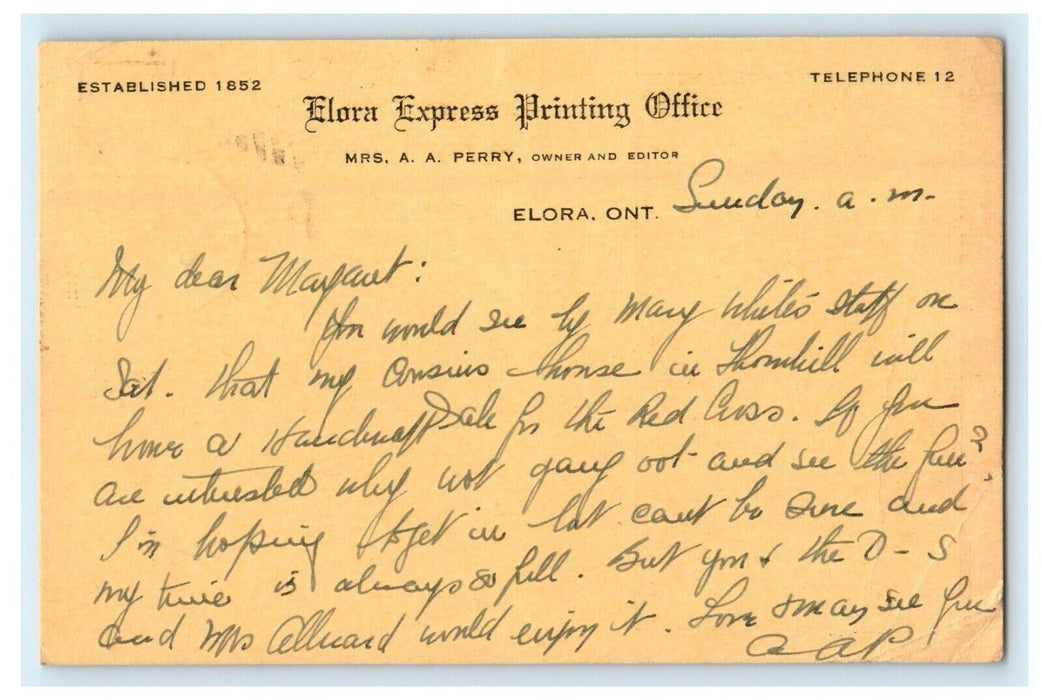 ESTABLISHED 1852
TELEPHONE 12
Elora Express Printing Office
MRS. A. A. PERRY, OWNER AND EDITOR
ELORA, ONT. Sunday. a.m.
My dear Margaret:
You would see by Mary White's stuff on
Sat. that my Cousins house in Thornhill will
have a Handicraft Sale for the Red Cross. If you
are interested why not gang oot and see the fun?
I'm hoping to get in but can't be sure and
my time is always so full. But you & the D-S
and Mrs Allward would enjoy it. Love & may see you
AAP